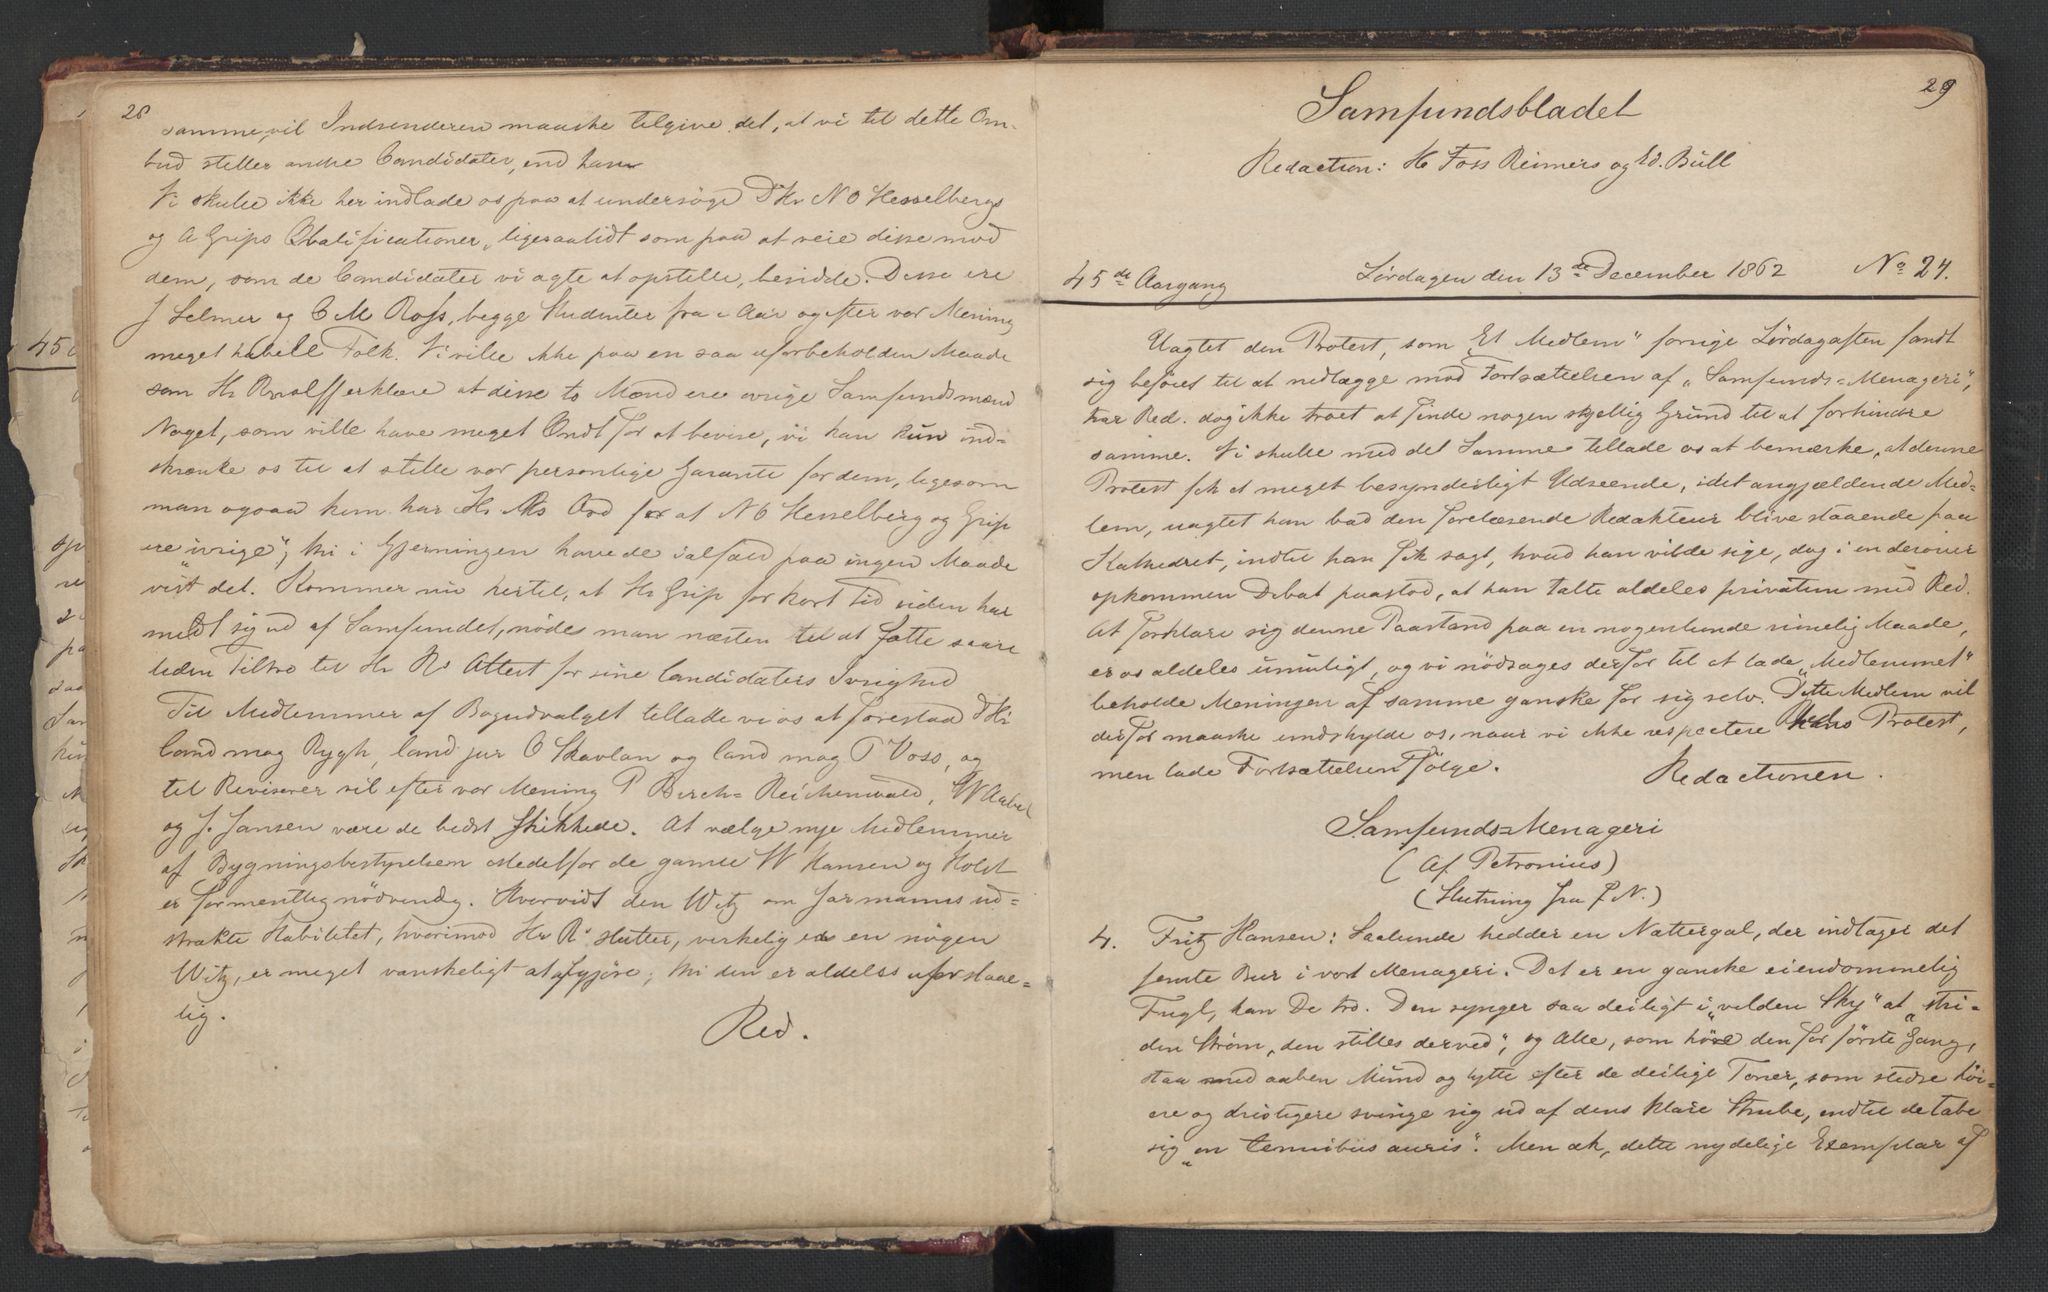 28
samme, vil Indsenderen maaske tilgive det, at vi til dette Om-
bud stiller andre Candidater, end han
Vi skulle ikke her indlade os paa at undersøge DHr N O Hesselbergs
og A Grips Qvalificationer, ligesaalidt som paa at veie disse mod
dem, som de Candidater vi agte at opstille, besidde. Disse ere
J Selmer og C M Ross, begge Studenter fra i Aar og efter vor Mening
meget habile Folk. Vi ville ikke paa en saa uforbeholden Maade
som Hr Rerklære at disse to Mænd ere ivrige Samfundsmænd
Noget, som ville have meget Ondt for at bevise, vi kan kun ind-
skrænke os til at stille vor personlige Garanti for dem, ligesom
man ogsaa kun har Hr Rs Ord for at N O Hesselberg og Grip
ere "ivrige"; thi i Gjerningen have de ialfald paa ingen Maade
vist det. Kommer nu hertil, at Hr Grip for kort Tid siden har
meldt sig ud af Samfundet, nødes man næsten til at fatte saare
liden Tiltro til Hr Rs Attest for sine Candidaters Ivrighed
Til Medlemmer af Bogudvalget tillade vi os at foreslaa DHr
Cand mag Rygh, Cand jur O Skavlan og Cand mag P Voss, og
til Revisorer vil efter vor Mening P Birch-Reichenwald, W Aubel
og J. Jansen være de bedst skikkede. At vælge nye Medlemmer
af Bygningsbestyrelsen istedetfor de gamle W Hansen og Holst
er formentlig nødvendig. Hvorvidt den Witz om Jarmanns ud-
strakte Habilitet, hvorimod Hr R slutter, virkelig er en nogen
Witz, er meget vanskeligt at afgjøre; thi den er aldeles uforstaae-
lig.
Red.
29
Samfundsbladet
Redaction: H Foss Reimers og Ed. Bull
45de Aargang Lørdagen den 13de December 1862 No 24.
Uagtet den Protest, som "Et Medlem" forrige Lørdagaften fandt
sig beføiet til at nedlægge mod Fortsættelsen af "Samfunds-Menageri",
har Red. dog ikke troet at finde nogen skjellig Grund til at forhindre
samme. Vi skulle med det Samme tillade os at bemærke, at denne
Protest fik et meget besynderligt Udseende, idet angjældende Med-
lem, uagtet han bad den forelæsende Redakteur blive staaende paa
Kathedret, indtil han fik sagt, hvad han vilde sige, dog i en derover
opkommen Debat paastod, at han talte aldeles privatim med Red.
At forklare sig denne Paastand paa en nogenlunde rimelig Maade,
er os aldeles umuligt, og vi nødsages derfor til at lade "Medlemmet"
beholde Meningen af samme ganske for sig selv. Dette Medlem vil
derfor maaske undskylde os, naar vi ikke respectere hans Protest,
men lade Fortsættelsen følge. Redactionen.
Samfunds-Menageri
(Af Petronius)
(Slutning fra f N.)
4. Fritz Hansen: Saalunde hedder en Nattergal, der indtager det
femte Bur i vort Menageri. Det er en ganske eiendommelig
Fugl, kan De tro. Den synger saa deiligt i "vilden Sky" at "stri-
den Strøm, den stilles derved", og Alle, som høre den for første Gang,
staa med aaben Mund og lytte efter de deilige Toner, som stedse høi-
ere og dristigere svinge sig ud af dens klare Strube, indtil de tabe
sig "in tenuibus auris". Men ak, dette nydelige Exemplar af